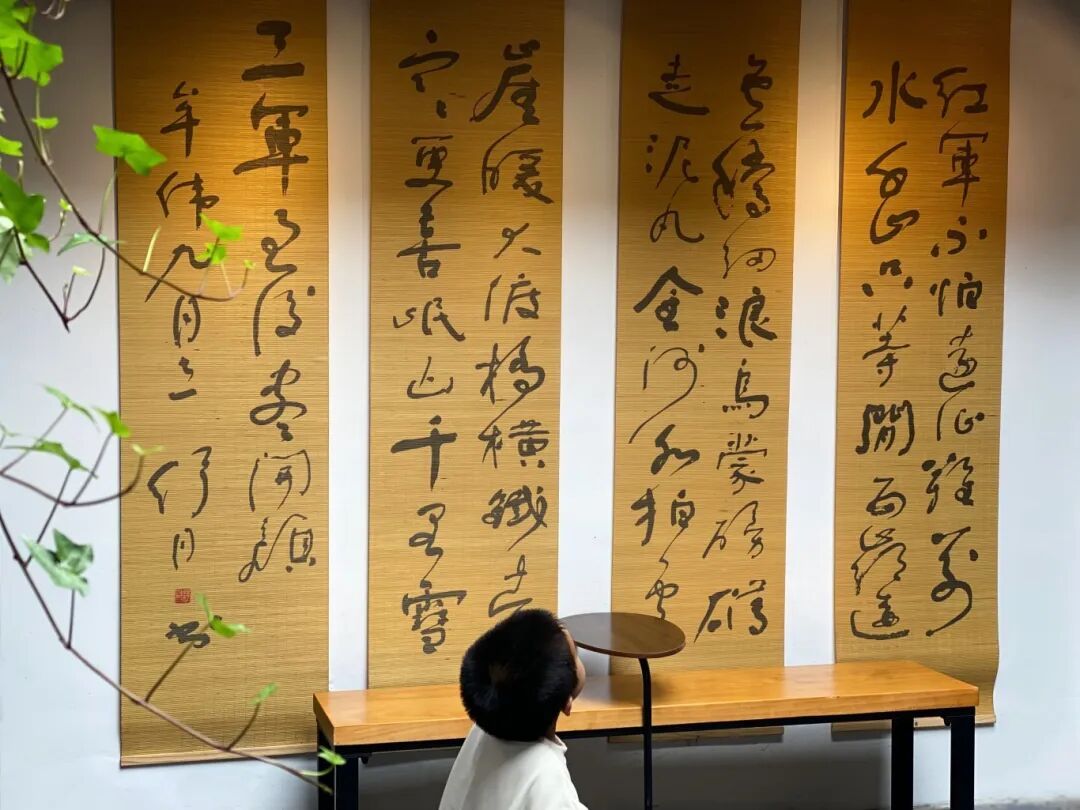 紅軍不怕遠征難萬
水千山只等閒五嶺逶
迤騰細浪烏蒙磅礴
走泥丸金沙水拍雲
崖暖大渡橋橫鐵索
寒更喜岷山千里雪
三軍過後盡開顏
九月
書